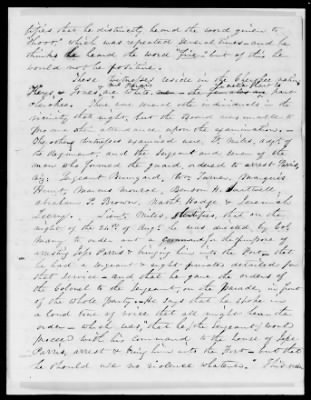 tifies that he distinctly heard the word given to
"Shoot" which was repeated several times - and he
thinks he heard the word "fire" - but of this he
would not be positive.
These witnesses reside in the Cherokee nation
are white
Cherokee. There were several other individuals in the
vicinity that night, but the Board was unable to
attendance upon the examination. -
The other witnesses examined were, Lt. Miles,
the Sergeant and men of the
men who formed the guard, ordered to arrest Parris,
viz: Sergeant Bunyard, Wm. Turner, Marquis
Hunt, Marcus Monroe, Benson H.
Abraham P. Brown, Nathl. Hodge & Jeremiah
Lieut. Miles, testifies, that on the
night of the 24th of Augt. he was directed by Col.
Mason to order out a command for the purpose of
arresting Jefe Parris & bringing him into the Post - that
he had a Sergeant & eight privates detailed for
that service - and that he gave the orders of
the Colonel to the Sergeant, on the Parade, in front
of the whole party. - He says that he spoke in
a loud tone of voice that all might hear the
order - which was, "that he (the Sergeant) must
proceed with his command to the house of Jefe
Parris, arrest & bring him into the Fort - but that
he should use no violence whatever." This